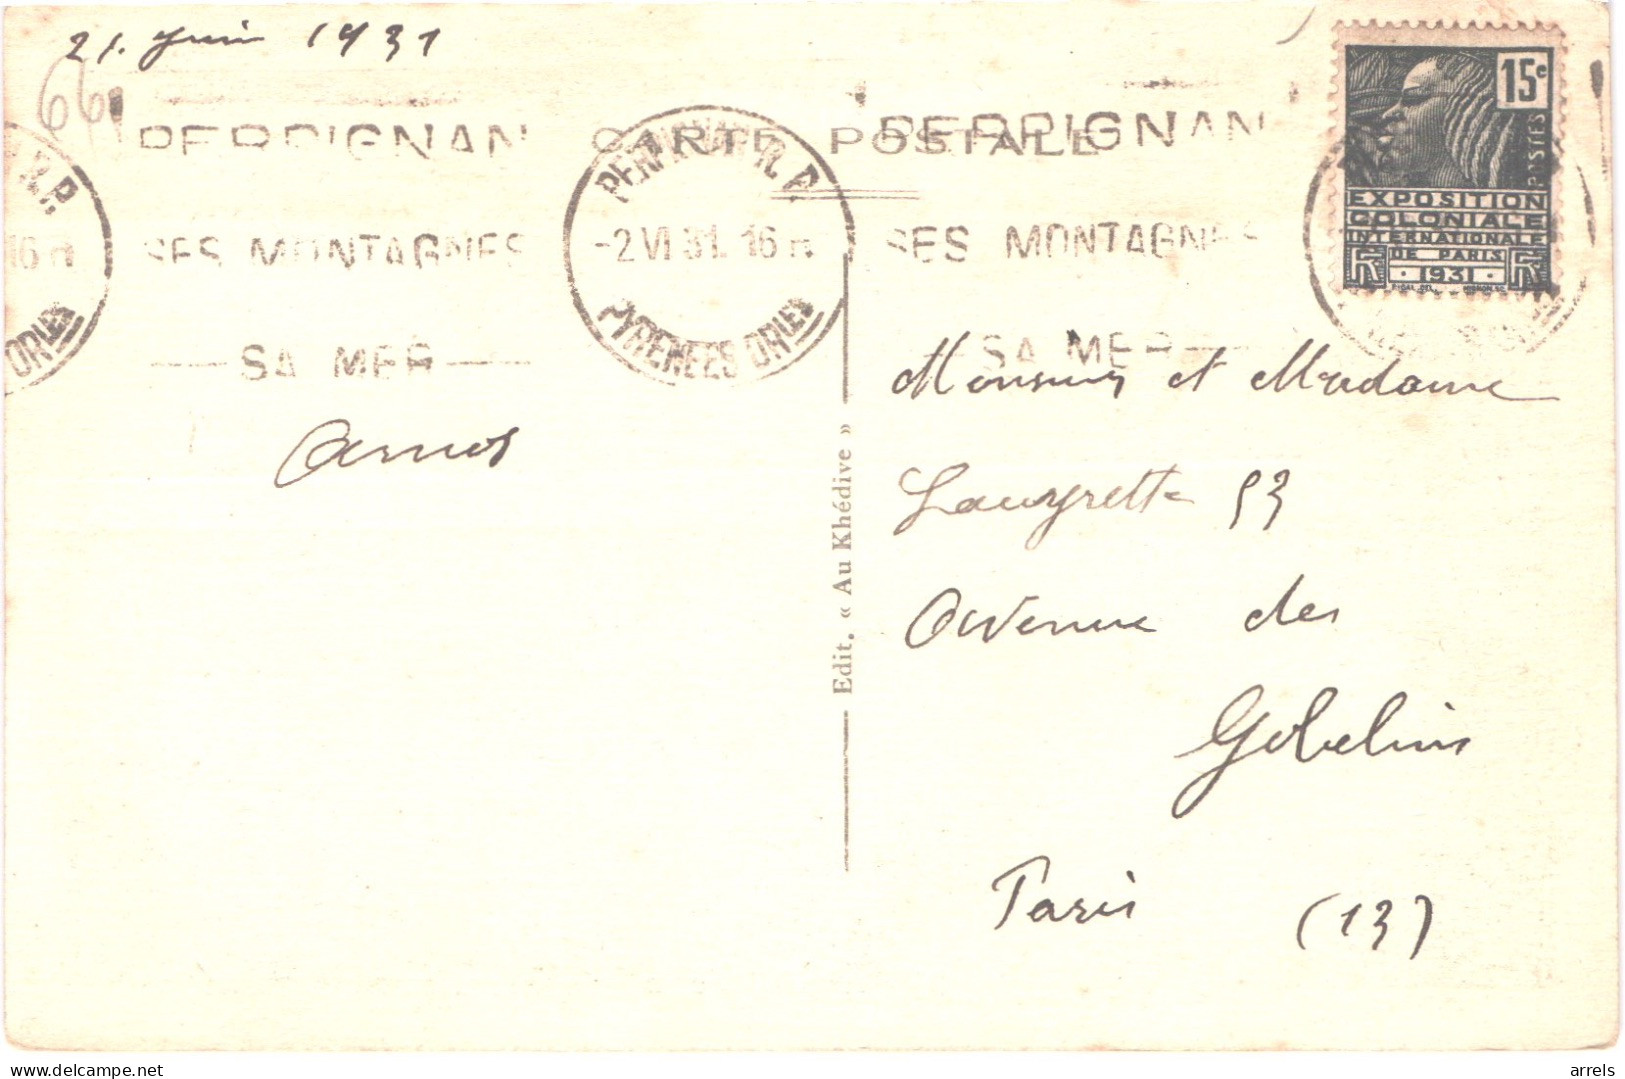 21. Juin 1931
66
PERPIGNAN
SES MONTAGNES
SA MER
CARTE POSTALE
PERPIGNAN R.P.
-2 VI 31. 16 H
PYRENEES ORIES
PERPIGNAN
SES MONTAGNES
SA MER
R.P.
16 H
ORIES
15c
POSTES
EXPOSITION
COLONIALE
INTERNATIONALE
DE PARIS
· 1931 ·
RF
RF
Edit. « Au Khédive »
Monsieur et Madame
53
Avenue des
Gobelins
Paris (13)
arrels